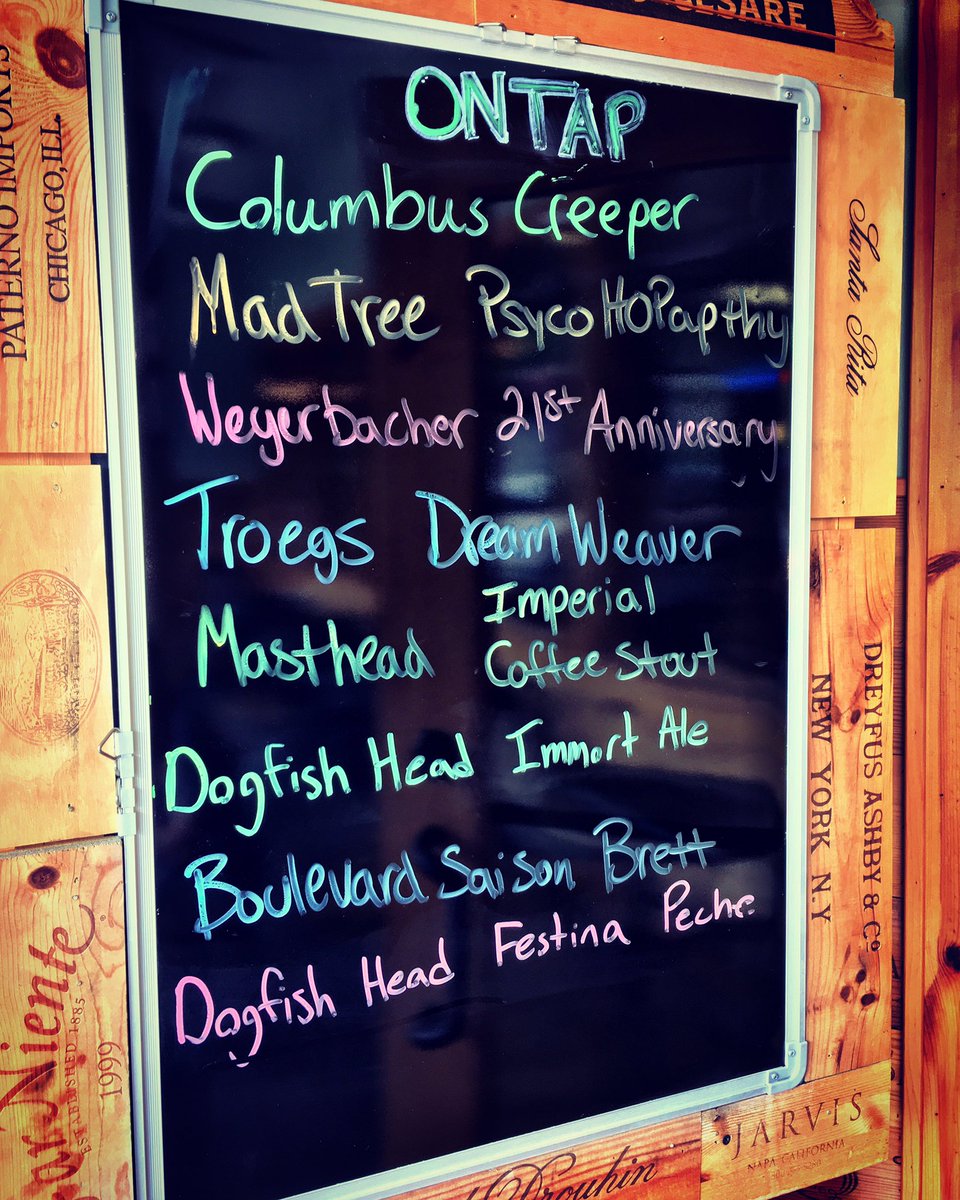 ESARE
ONTAP
Columbus Creeper
MadTree PsycoHOPapthy
Weyerbacher 21st Anniversary
Troegs DreamWeaver
Masthead Imperial
Coffee Stout
Dogfish Head Immort Ale
Boulevard Saison Brett
Dogfish Head Festina Peche
PATERNO IMPORTS
CHICAGO, ILL.
Niente
ESTABLISHED 1885
1999
Santa Rita
DREYFUS ASHBY & Co
NEW YORK N.Y
JARVIS
NAPA CALIFORNIA
Drouhin